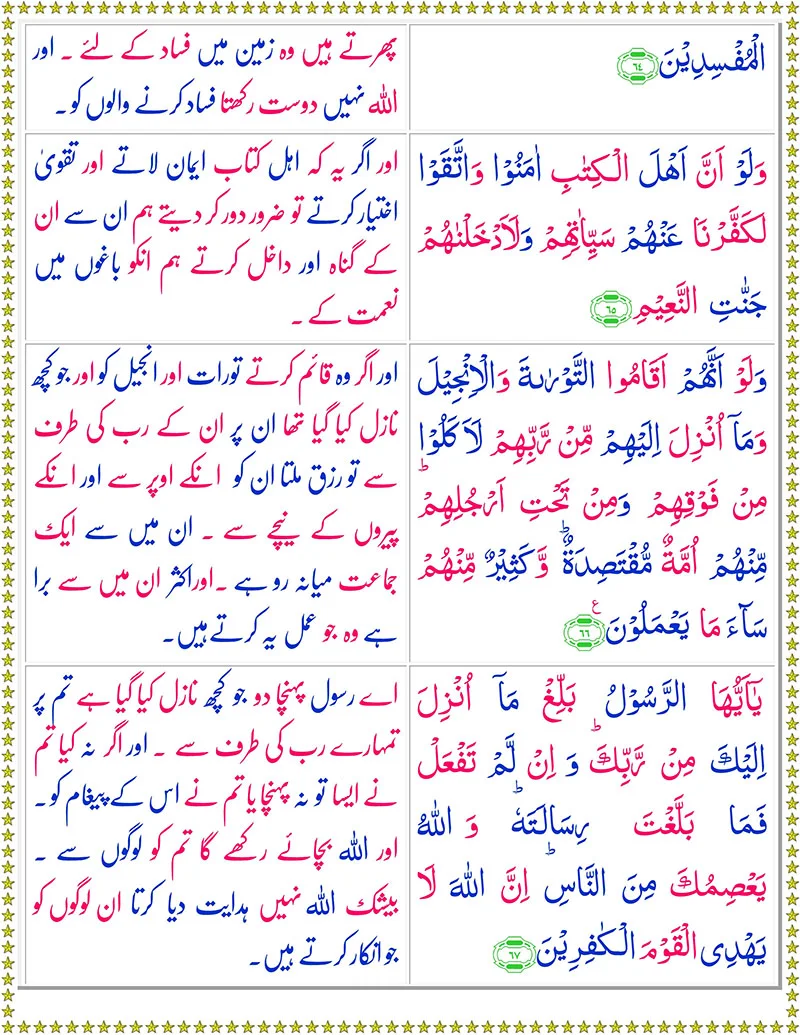 الْمُفْسِدِيْنَ ﴿٦٤﴾
پھرتے ہیں وہ زمین میں فساد کے لئے ۔ اور
اللہ نہیں دوست رکھتا فساد کرنے والوں کو ۔
وَلَوْ اَنَّ اَهْلَ الْكِتٰبِ اٰمَنُوْا وَاتَّقَوْا
لَكَفَّرْنَا عَنْهُمْ سَيِّاٰتِهِمْ وَلَاَدْخَلْنٰهُمْ
جَنّٰتِ النَّعِيْمِ ﴿٦٥﴾
اور اگر یہ کہ اہل کتاب ایمان لاتے اور تقویٰ
اختیار کرتے تو ضرور دور کر دیتے ہم ان سے ان
کے گناہ اور داخل کرتے ہم انکو باغوں میں
نعمت کے ۔
وَلَوْ اَنَّهُمْ اَقَامُوا التَّوْرٰىةَ وَالْاِنْجِيْلَ
وَمَاۤ اُنْزِلَ اِلَيْهِمْ مِّنْ رَّبِّهِمْ لَاَكَلُوْا
مِنْ فَوْقِهِمْ وَمِنْ تَحْتِ اَرْجُلِهِمْ ؕ
مِّنْهُمْ اُمَّةٌ مُّقْتَصِدَةٌ ؕ وَّكَثِيْرٌ مِّنْهُمْ
سَآءَ مَا يَعْمَلُوْنَ ﴿٦٦﴾ ع
اور اگر وہ قائم کرتے تورات اور انجیل کو اور جو کچھ
نازل کیا گیا تھا ان پر ان کے رب کی طرف
سے تو رزق ملتا ان کو انکے اوپر سے اور انکے
پیروں کے نیچے سے ۔ ان میں سے ایک
جماعت میانہ رو ہے ۔ اور اکثر ان میں سے برا
ہے وہ جو عمل یہ کرتے ہیں ۔
يٰۤاَيُّهَا الرَّسُوْلُ بَلِّغْ مَاۤ اُنْزِلَ
اِلَيْكَ مِنْ رَّبِّكَ ؕ وَ اِنْ لَّمْ تَفْعَلْ
فَمَا بَلَّغْتَ رِسَالَتَهٗ ؕ وَ اللّٰهُ
يَعْصِمُكَ مِنَ النَّاسِ ؕ اِنَّ اللّٰهَ لَا
يَهْدِى الْقَوْمَ الْكٰفِرِيْنَ ﴿٦٧﴾
اے رسول پہنچا دو جو کچھ نازل کیا گیا ہے تم پر
تمہارے رب کی طرف سے ۔ اور اگر نہ کیا تم
نے ایسا تو نہ پہنچایا تم نے اس کے پیغام کو ۔
اور اللہ بچائے رکھے گا تم کو لوگوں سے ۔
بیشک اللہ نہیں ہدایت دیا کرتا ان لوگوں کو
جو انکار کرتے ہیں ۔